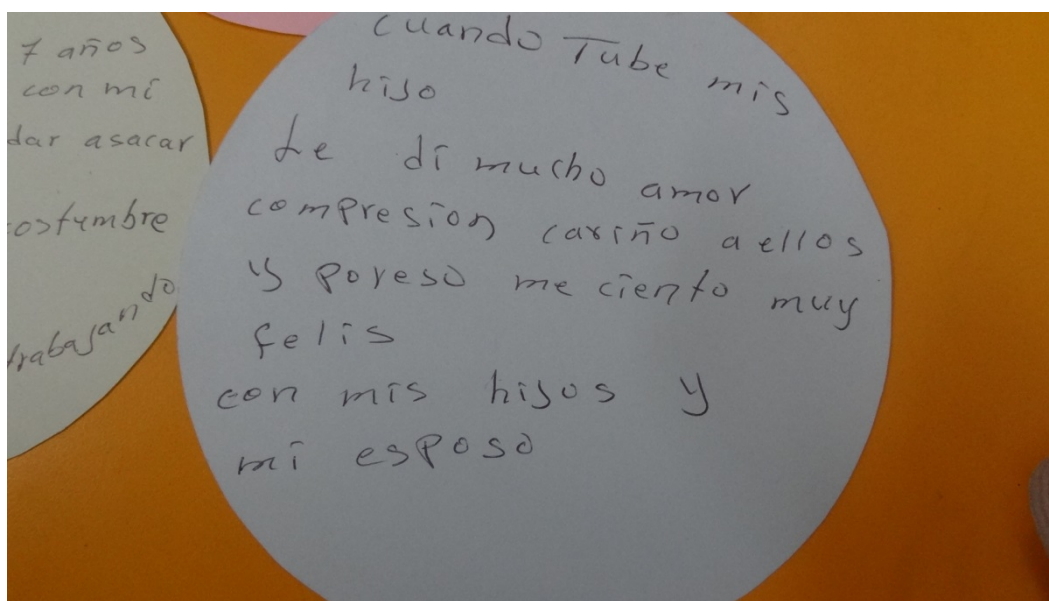 7 años
con mi
dar asacar
costumbre
trabajando
cuando Tube mis
hijo
Le di mucho amor
compresion cariño a ellos
y poreso me ciento muy
felis
con mis hijos y
mi esposo